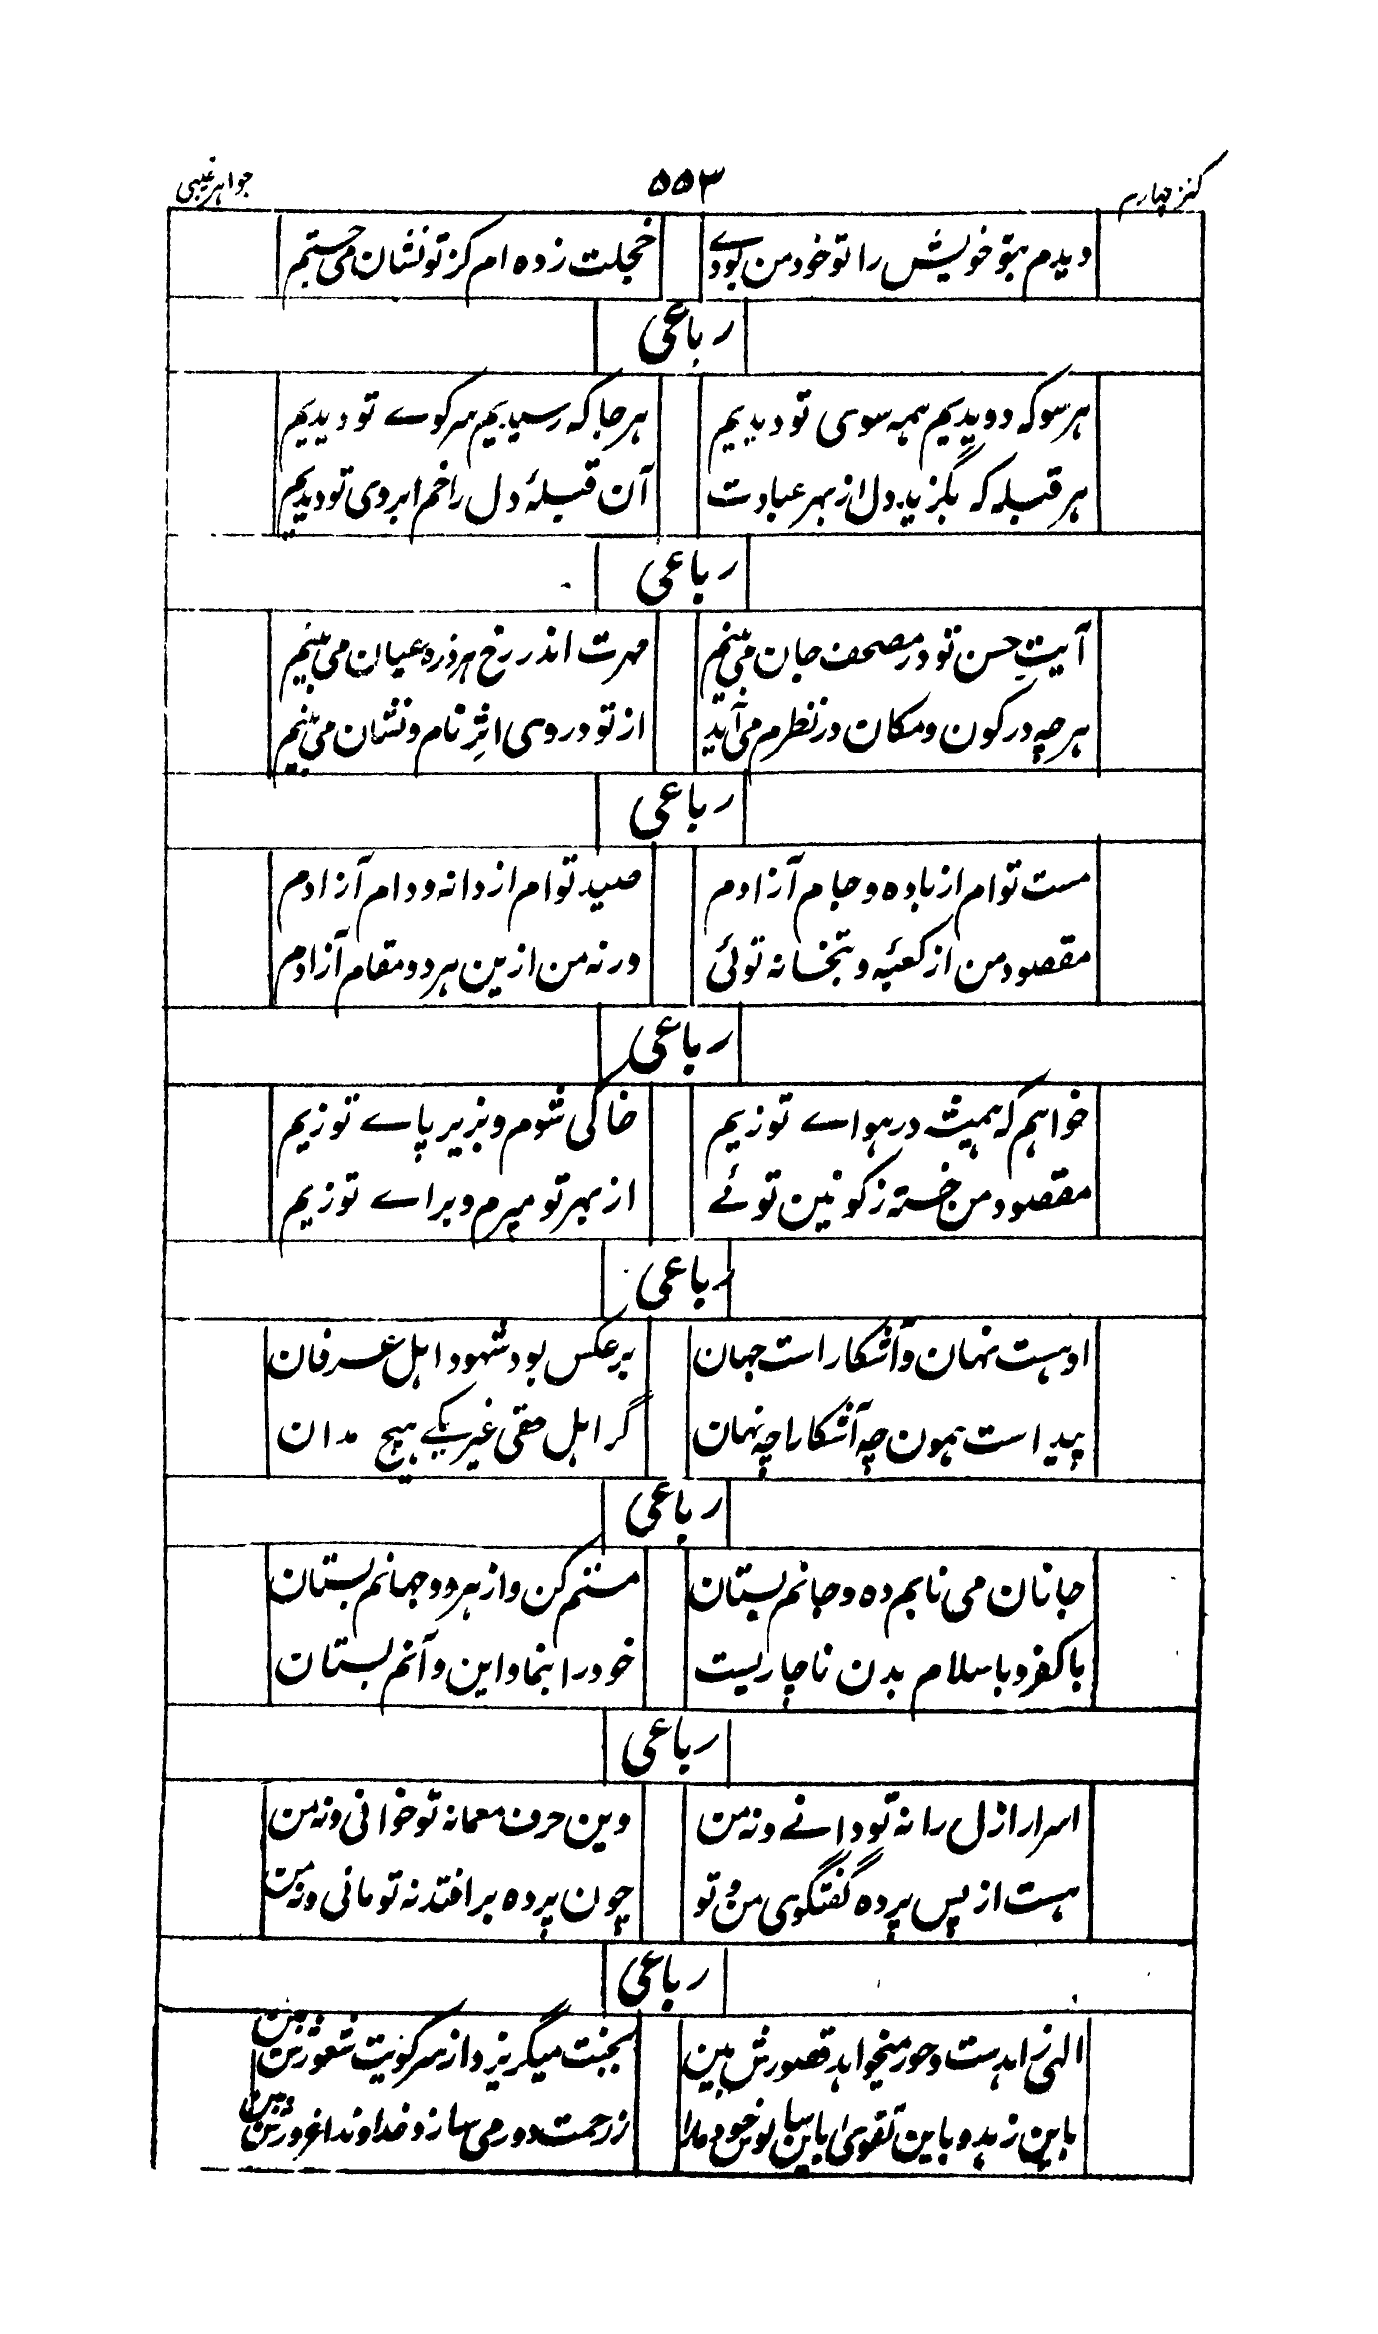 کنز چهارم ۵۵۳ جواهر غیبی
دیدم بتو خویش را تو خود من بودے خجلت زده ام کز تو نشان می جستم
رباعی
هر سو که دویدیم همه سوی تو دیدیم هر جا که رسیدیم سر کوے تو دیدیم
هر قبله که بگزید دل از بهر عبادت آن قبلهٔ دل را خم ابروی تو دیدیم
رباعی
آیت حسن تو در مصحف جان می بینم مهرت اندر رخ هر ذره عیان می بینم
هر چه در کون و مکان در نظرم می آید از تو در وی اثر نام و نشان می بینم
رباعی
مست توام از باده و جام آزادم صید توام از دانه و دام آزادم
مقصود من از کعبه و بتخانه توئی ورنه من ازین هر دو مقام آزادم
رباعی
خواهم که همیشه در هواے تو زیم خاکی شوم و بزیر پاے تو زیم
مقصود من خسته ز کونین توئے از بهر تو میرم و براے تو زیم
رباعی
اوست نهان و آشکار است جهان بر عکس بود شهود اهل عرفان
پیداست همون چه آشکارا چه نهان گر اهل حقی غیر یکے هیچ مدان
رباعی
جانان می نابم ده و جانم بستان مستم کن و از هر دو جهانم بستان
با کفر و باسلام بدن ناچاریست خود را بنما و این و آنم بستان
رباعی
اسرار ازل را نه تو دانے و نه من وین حرف معما نه تو خوانی و نه من
هست از پس پرده گفتگوی من و تو چون پرده بر افتد نه تو مانی و نه من
رباعی
الهی زاهدست و حور میخواهد قصورش بین بجنت میگریزد از سر کویت شعورش بین
باین زهد و باین تقوی باین خود ما را ز رحمت دور می سازد خداوندا غرورش بین